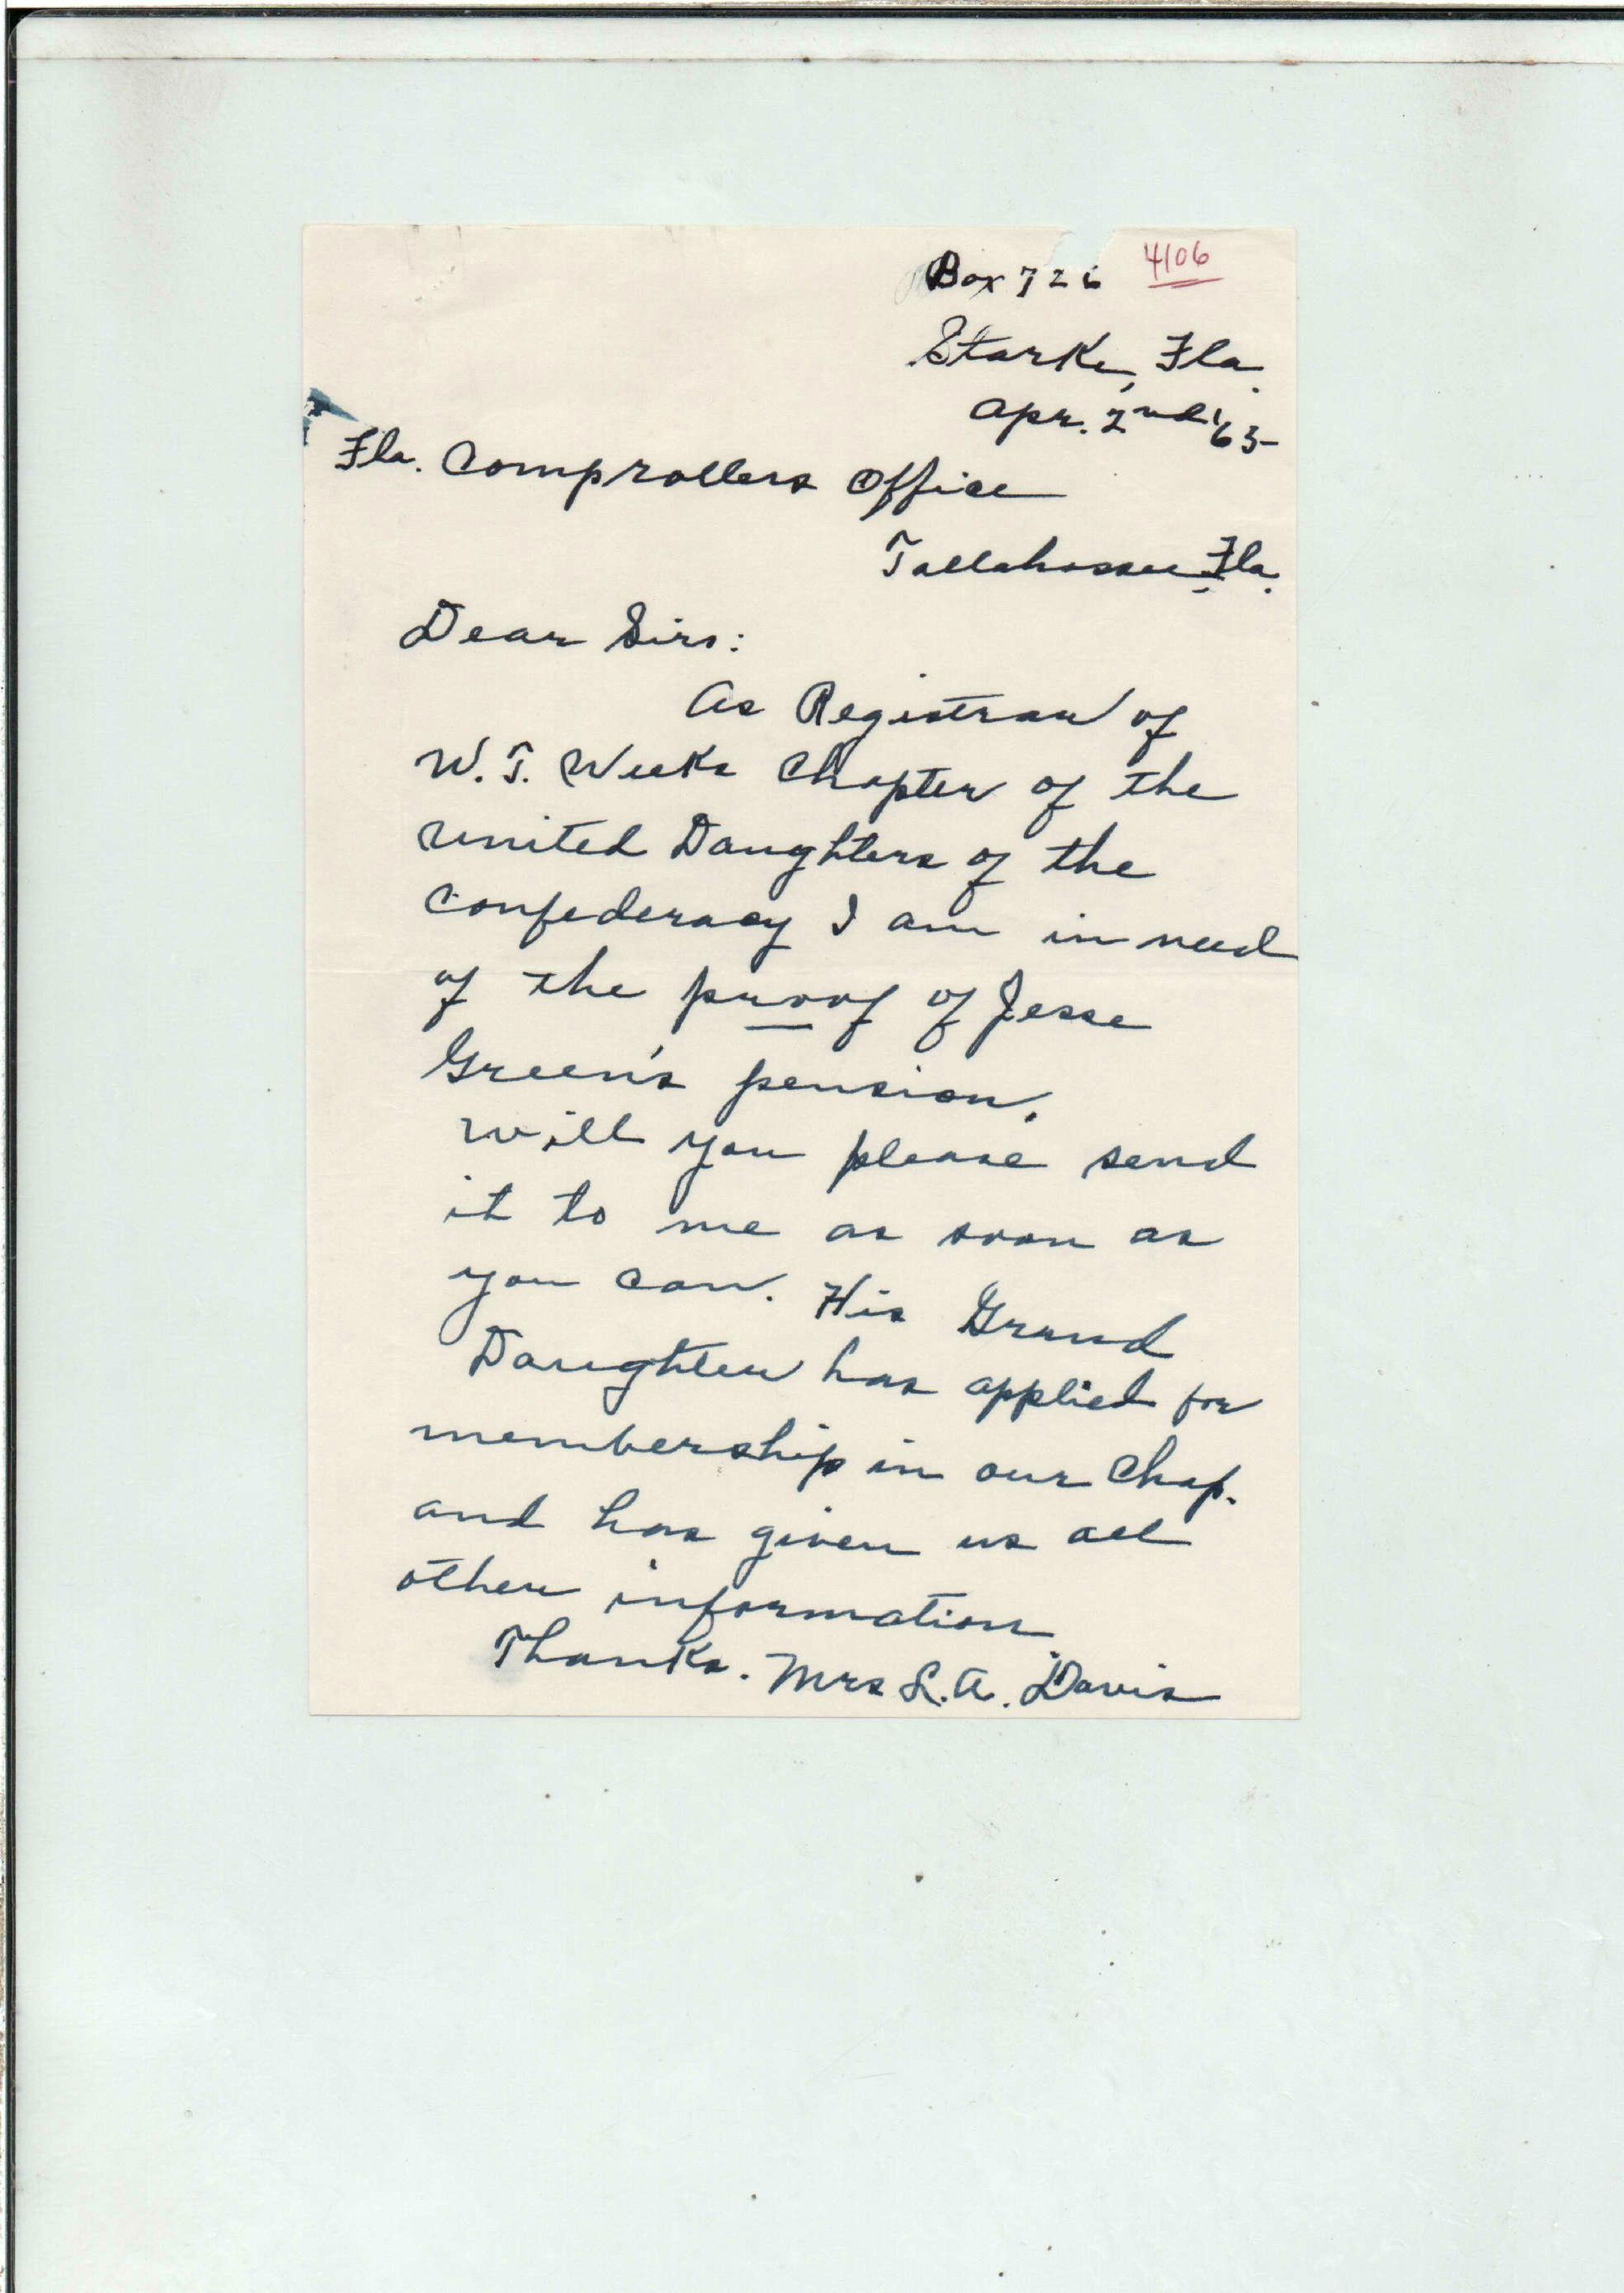 Box 726 4106
Starke, Fla.
Apr. 2nd '63-
Fla. Comprollers Office
Tallahassee, Fla.
Dear Sirs:
As Registrar of
W. T. Weeks Chapter of the
United Daughters of the
Confederacy I am in need
of the proof of Jesse
Green's pension.
Will you please send
it to me as soon as
you can. His Grand
Daughter has applied for
membership in our Chap.
and has given us all
other information.
Thanks. Mrs L. A. Davis